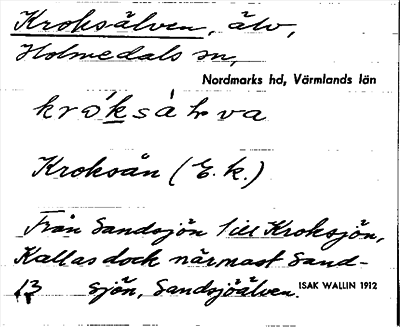 Kroksälven, älv,
Holmedals sn,
Nordmarks hd, Värmlands län
Kroksån (E. k.)
Från Sandsjön till Kroksjön,
Kallas dock närmast Sand-
13 sjön, Sandsjöälven. ISAK WALLIN 1912